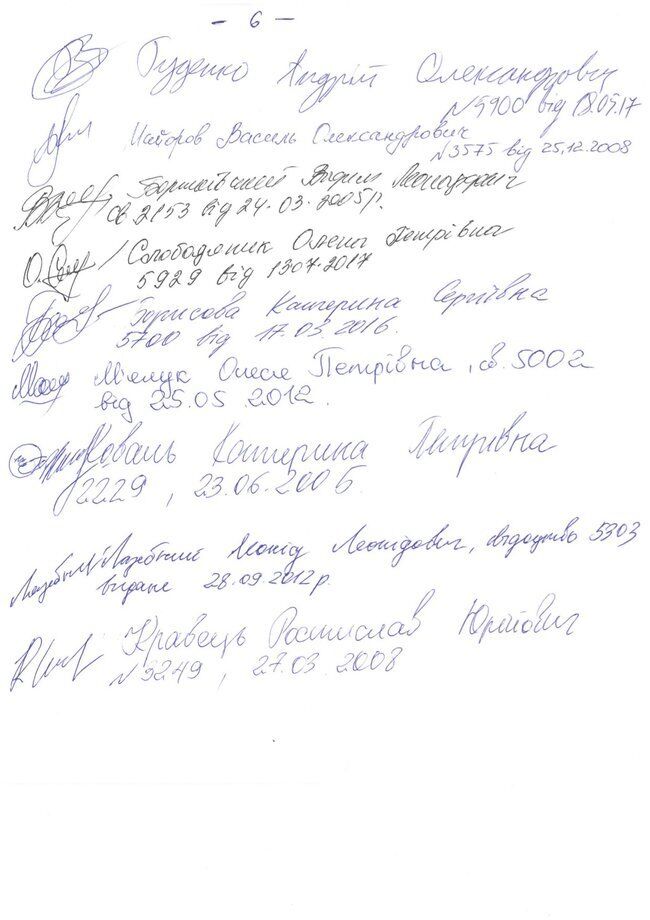 - 6 -
Гуденко Андрій Олександрович
№5900 від 18.05.17
Майоров Василь Олександрович
№3575 від 25.12.2008
Вадим
св 2153 від 24.03.2005р.
Слободяник Олена Петрівна
5929 від 13.07.2017
Борисова Катерина Сергіївна
5700 від 17.03.2016.
Олеся Петрівна, св. 5002
від 25.05.2012.
Коваль Катерина Петрівна
2229, 23.06.2005
Леонід Леонідович, свідоцтво 5303
видане 28.09.2012р.
Кравець Ростислав Юрійович
№3249, 27.03.2008